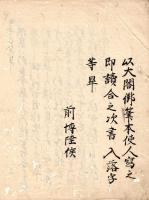 以大閣佛藁本使人寫之
即讀合之次書入落字
等早
前博陸侯